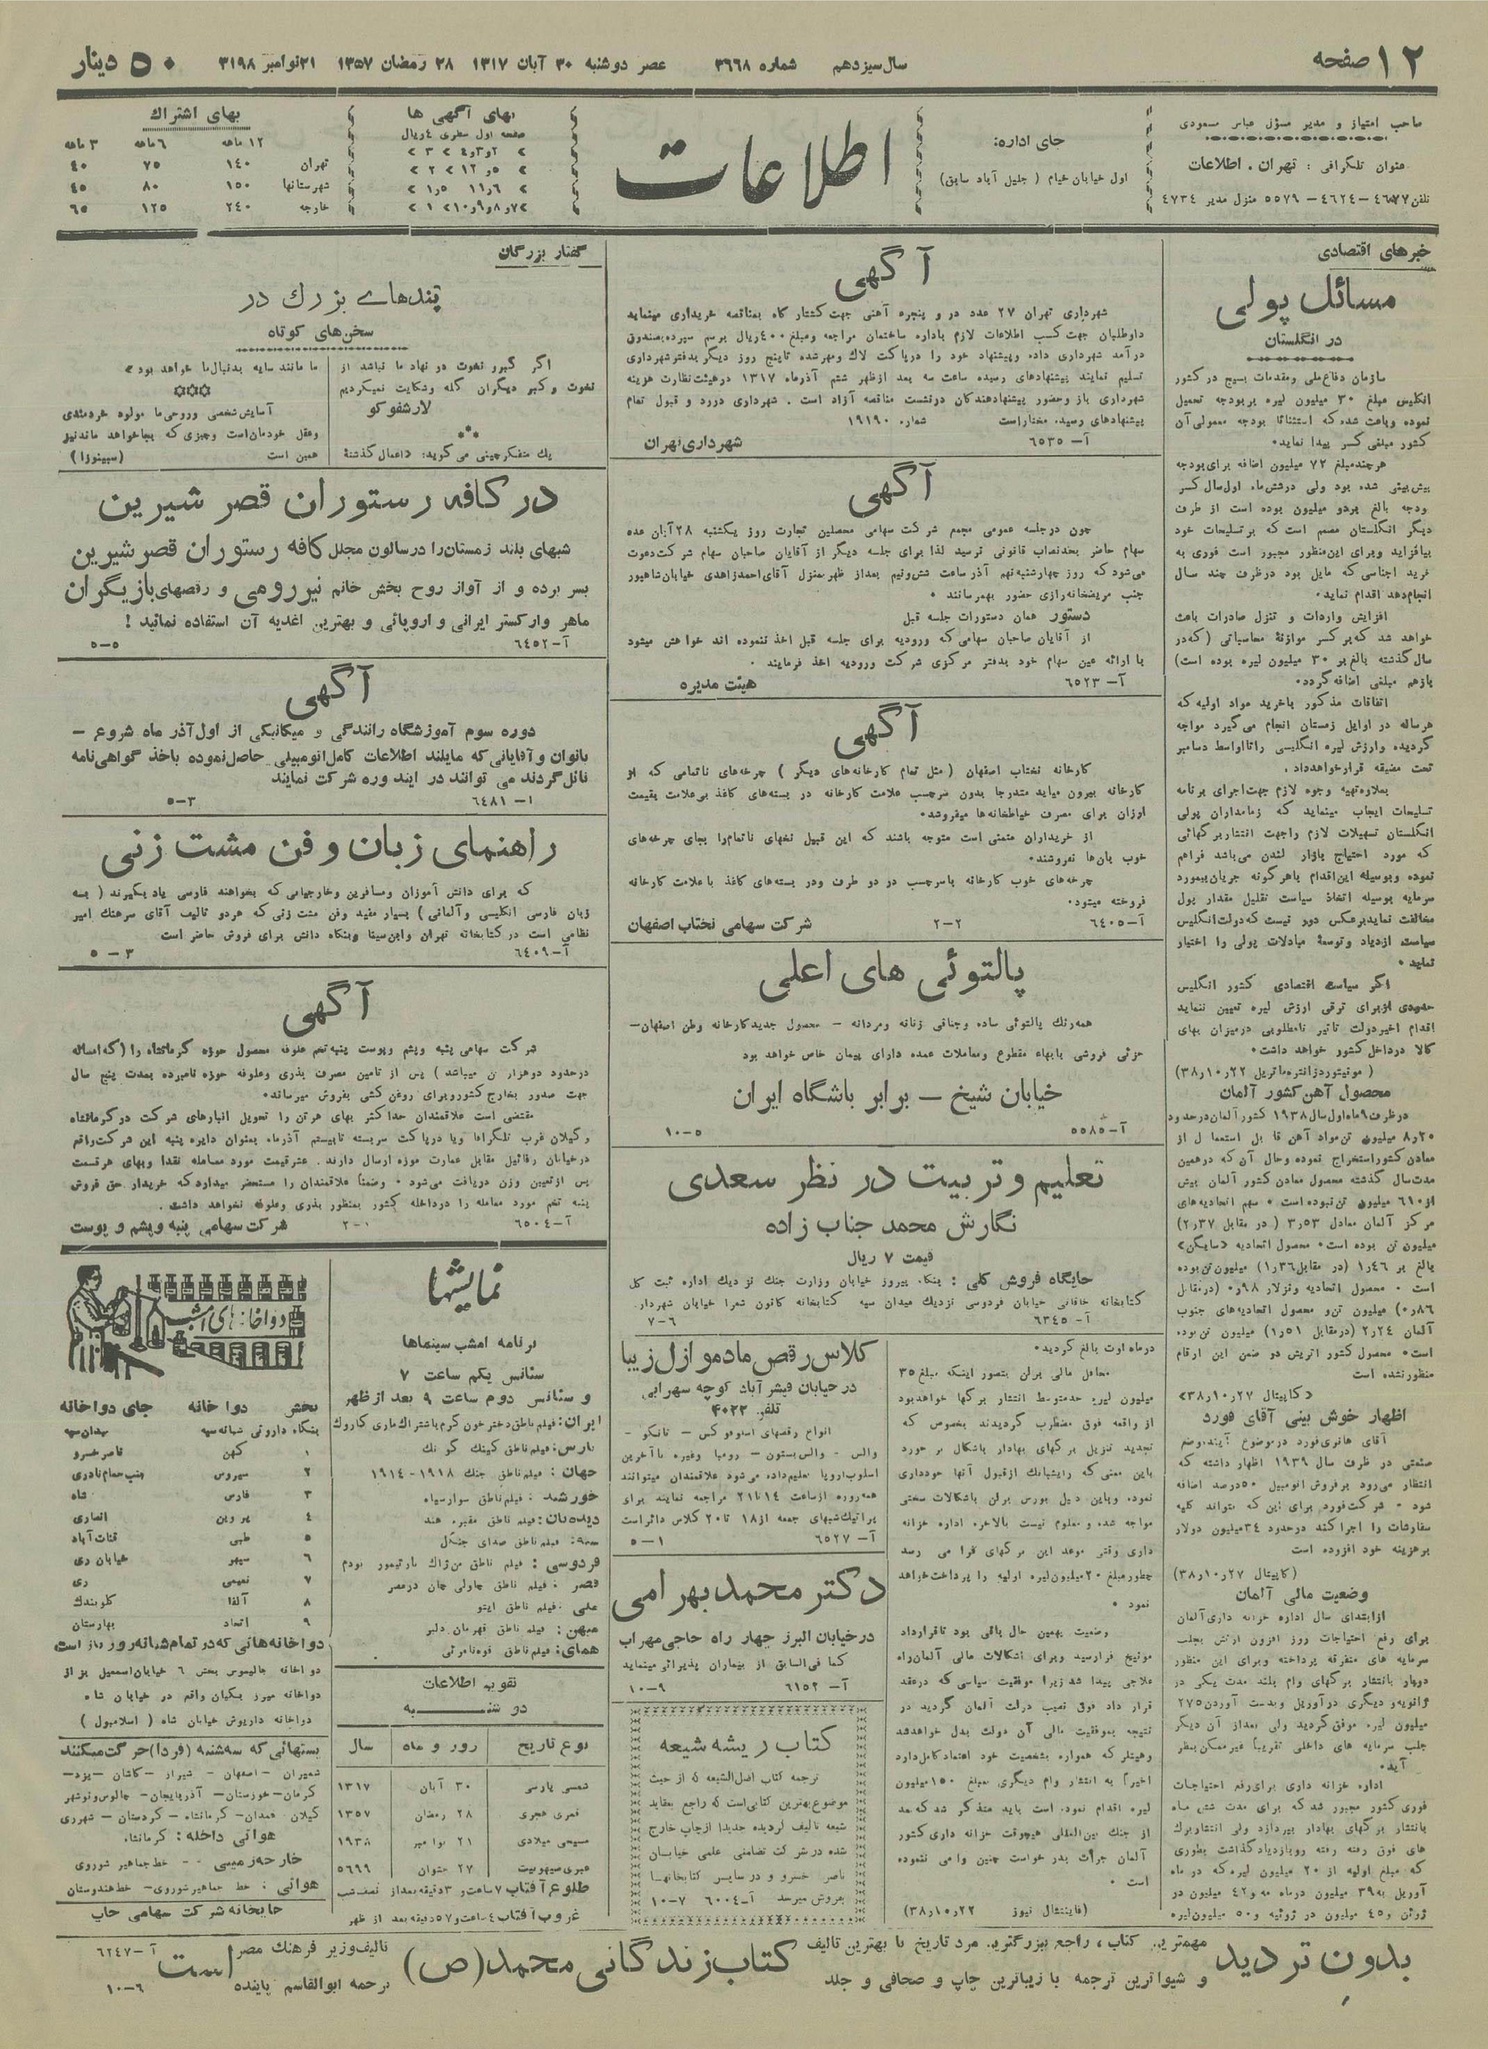 ۱۲ صفحه
سال سیزدهم شماره ۳۶۶۸ عصر دوشنبه ۳۰ آبان ۱۳۱۷ ۲۸ رمضان ۱۳۵۷ ۲۱ نوامبر ۳۱۹۸
۵۰ دینار
صاحب امتیاز و مدیر مسؤل عباس مسعودی
عنوان تلگرافی : تهران . اطلاعات
جای اداره:
اول خیابان خیام ( جلیل آباد سابق )
اطلاعات
بهای آگهی ها
صفحه اول سطری ۴ ریال
بهای اشتراك
۱۲ ماهه ۶ ماهه ۳ ماهه
تهران ۱۴۰ ۷۵ ۴۰
شهرستانها ۱۵۰ ۸۰ ۴۵
خارجه ۲۴۰ ۱۲۵ ۶۵
خبرهای اقتصادی
مسائل پولی
در انگلستان
سازمان دفاع ملی و مقدمات بسیج در کشور
انگلیس مبلغ ۳۰ میلیون لیره بر بودجه تحمیل
نموده و باعث شده که استثنائا بودجه معمولی آن
کشور مبلغی کسر پیدا نماید.
هر چند مبلغ ۷۲ میلیون اضافه برای بودجه
پیش بینی شده بود ولی در شش ماه اول سال کسر
ودجه بالغ بر دو میلیون بوده است از طرف
دیگر انگلستان مصمم است که بر تسلیحات خود
بیافزاید و برای این منظور مجبور است فوری به
خرید اجناسی که مایل بود در ظرف چند سال
انجام دهد اقدام نماید.
افزایش واردات و تنزل صادرات باعث
خواهد شد که بر کسر موازنۀ محاسباتی (که در
سال گذشته بالغ بر ۳۰ میلیون لیره بوده است)
بازهم مبلغی اضافه گردد.
اتفاقات مذکور با خرید مواد اولیه که
هر ساله در اوایل زمستان انجام می گیرد مواجه
گردیده و ارزش لیره انگلیسی را تا اواسط دسامبر
تحت مضیقه قرار خواهد داد.
بعلاوه تهیه وجوه لازم جهت اجرای برنامه
تسلیحات ایجاب مینماید که زمامداران پولی
انگلستان تسهیلات لازم را جهت انتشار بر گهائی
که مورد احتیاج بازار لندن می باشد فراهم
نموده و بوسیله این اقدام با هر گونه جریان بیمورد
سرمایه بوسیله اتخاذ سیاست تقلیل مقدار پول
مخالفت نماید بر عکس دور نیست که دولت انگلیس
سیاست ازدیاد و توسعۀ مبادلات پولی را اختیار
نماید.
اگر سیاست اقتصادی کشور انگلیس
حدودی از برای ترقی ارزش لیره تعیین ننماید
اقدام اخیر دولت تاثیر نامطلوبی در میزان بهای
کالا در داخل کشور خواهد داشت.
محصول آهن کشور آلمان
در ظرف ۹ ماه اول سال ۱۹۳۸ کشور آلمان در حدود
۲۰٫۸ میلیون تن مواد آهن قابل استعمال از
معادن کشور استخراج نموده و حال آن که در همین
مدت سال گذشته محصول معادن کشور آلمان بیش
مرکز آلمان معادل ۳٫۵۳ ( در مقابل ۲٫۳۷)
میلیون تن بوده است. محصول اتحادیه «سایگن»
بالغ بر ۱٫۴۶ (در مقابل ۱٫۳۶) میلیون تن بوده
است. محصول اتحادیه وتزلار ۰٫۹۸ (در مقابل
۰٫۸۶) میلیون تن و محصول اتحادیه های جنوب
آلمان ۲٫۲۴ (در مقابل ۱٫۵۱) میلیون تن بوده
است. محصول کشور اتریش در ضمن این ارقام
منظور نشده است
«کاپیتال ۲۷ر۱۰ر۳۸»
اظهار خوش بینی آقای فورد
آقای هانری فورد در موضوع آینده وضع
صنعتی در ظرف سال ۱۹۳۹ اظهار داشته که
انتظار می رود بر فروش اتومبیل ۵۰ درصد اضافه
شود. شرکت فورد برای این که بتواند کلیه
سفارشات را اجرا کند در حدود ۳۴ میلیون دولار
بر هزینه خود افزوده است
(کاپیتال ۲۷ر۱۰ر۳۸)
وضعیت مالی آلمان
از ابتدای سال اداره خزانه داری آلمان
برای رفع احتیاجات روز افزون ارتش بجلب
سرمایه های متفرقه پرداخته و برای این منظور
دوبار بانتشار برگهای وام بلند مدت یکی در
ژانویه و دیگری در آوریل و بدست آوردن ۲۷۵
میلیون لیره موفق گردید ولی بعد از آن دیگر
جلب سرمایه های داخلی تقریباً غیر ممکن بنظر
آید.
اداره خزانه داری برای رفع احتیاجات
فوری کشور مجبور شد که برای مدت شش ماه
بانتشار برگهای بهادار بپردازد ولی انتشار برگ
های فوق رفته رفته رو بازدیاد گذاشت بطوری
که مبلغ اولیه از ۲۰ میلیون لیره که در ماه
آوریل به ۳۹ میلیون در ماه مه و ۴۲ میلیون در
ژوئن و ۴۵ میلیون در ژوئیه و ۵۰ میلیون لیره
آگهی
شهرداری تهران ۲۷ عدد در و پنجره آهنی جهت کشتارگاه بمناقصه خریداری مینماید
داوطلبان جهت کسب اطلاعات لازم باداره ساختمان مراجعه و مبلغ ۴۰۰ ریال برسم سپرده بصندوق
درآمد شهرداری داده و پیشنهاد خود را در پاکت لاك و مهر شده تا پنج روز دیگر بدفتر شهرداری
تسلیم نمایند پیشنهادهای رسیده ساعت سه بعد از ظهر ششم آذر ماه ۱۳۱۷ در هیئت نظارت هزینه
شهرداری باز و حضور پیشنهاد دهندگان در نشست مناقصه آزاد است . شهرداری در رد و قبول تمام
پیشنهادهای رسیده مختار است شماره ۱۹۱۹۰
آ— ۶۵۳۵ شهرداری تهران
آگهی
چون در جلسه عمومی مجمع شرکت سهامی محصلین تجارت روز یکشنبه ۲۸ آبان عده
سهام حاضر بحد نصاب قانونی نرسید لذا برای جلسه دیگر از آقایان صاحبان سهام شرکت دعوت
می شود که روز چهارشنبه نهم آذر ساعت شش و نیم بعد از ظهر منزل آقای احمد زاهدی خیابان شاهپور
جنب مریضخانه رازی حضور بهمرسانند .
دستور همان دستورات جلسه قبل
از آقایان صاحبان سهامی که ورودیه برای جلسه قبل اخذ ننموده اند خواهش میشود
با ارائه عین سهام خود بدفتر مرکزی شرکت ورودیه اخذ فرمایند .
آ— ۶۵۲۳ هیئت مدیره
آگهی
کارخانه نختاب اصفهان ( مثل تمام کارخانه های دیگر ) چرخه های ناتمامی که از
کارخانه بیرون میاید متدرجا بدون سرچسب علامت کارخانه در بسته های کاغذ بی علامت بقیمت
ارزان برای مصرف خیاطخانه ها میفروشد.
از خریداران متمنی است متوجه باشند که این قبیل نخهای ناتمام را بجای چرخه های
خوب بآن ها نفروشند.
چرخه های خوب کارخانه با سرچسب در دو طرف و در بسته های کاغذ با علامت کارخانه
فروخته میشود.
آ— ۶۴۰۵ ۲—۲ شرکت سهامی نختاب اصفهان
پالتوئی های اعلی
همه رنك پالتوئی ساده و جناقی زنانه و مردانه — محصول جدید کارخانه وطن اصفهان—
جزئی فروشی با بهاء مقطوع و معاملات عمده دارای پیمان خاص خواهد بود
خیابان شیخ — برابر باشگاه ایران
آ— ۵۵۸۵ ۵—۱۰
تعلیم و تربیت در نظر سعدی
نگارش محمد جناب زاده
قیمت ۷ ریال
جایگاه فروش کلی : بنگاه پیروز خیابان وزارت جنك نزدیك اداره ثبت کل
کتابخانه خاقانی خیابان فردوسی نزدیك میدان سپه کتابخانه کانون شعرا خیابان شهرداری
آ— ۶۳۴۵ ۶—۷
در ماه اوت بالغ گردید.
محافل مالی برلن بتصور اینکه مبلغ ۳۵
میلیون لیره حد متوسط انتشار برگها خواهد بود
از واقعه فوق مضطرب گردیدند بخصوص که
تجدید تنزیل برگهای بهادار باشکال بر خورد
باین معنی که رایشبانك از قبول آنها خودداری
نمود. و باین دلیل بورس برلن باشکالات سختی
مواجه شده و معلوم نیست بالاخره اداره خزانه
داری وقتی موعد این برگهای فرا می رسد
چطور مبلغ ۲۰ میلیون لیره اولیه را پرداخت خواهد
نمود.
وضعیت بهمین حال باقی بود تا قرارداد
مونیخ فرارسید و برای اشکالات مالی آلمان راه
علاجی پیدا شد زیرا موفقیت سیاسی که در عقد
قرار داد فوق نصیب دولت آلمان گردید در
نتیجه بموفقیت مالی آن دولت بدل خواهد شد
و هیتلر که همواره بشخصیت خود اعتماد کامل دارد
اخیراً به انتشار وام دیگری بمبلغ ۱۵۰ میلیون
لیره اقدام نمود. است باید متذکر شد که بعد
از جنك بین المللی هیچوقت خزانه داری کشور
آلمان جرأت بدر خواست چنین وامی ننموده
است .
(فاینانشال نیوز ۲۲ر۱۰ر۳۸)
کلاس رقص مادموازل زیبا
در خیابان فیشر آباد کوچه سهرابی
تلفن ۴۰۲۲
انواع رقصهای اسلوفوکس — تانگو —
والس - والس بستون - رومبا وغیره با آخرین
اسلوب اروپا تعلیم داده می شود علاقمندان میتوانند
همه روزه از ساعت ۱۴ تا ۲۱ مراجعه نمایند برای
پراتیك شبهای جمعه از ۱۸ تا ۲۰ کلاس دائر است
آ— ۶۵۲۷ ۱—۵
دکتر محمد بهرامی
در خیابان البرز چهار راه حاجی مهراب
کما فی السابق از بیماران پذیرائی مینماید
آ— ۶۱۵۲ ۹—۱۰
کتاب ریشه شیعه
ترجمه کتاب اصل الشیعه که از حیث
موضوع بهترین کتابی است که راجع بعقاید
شیعه تالیف گردیده جدیدا از چاپ خارج
شده در شرکت تضامنی علمی خیابان
ناصر خسرو و در سایر کتابخانها
بفروش میرسد آ—۶۰۰۴ ۷—۱۰
گفتار بزرگان
پندهای بزرك در
سخن های کوتاه
اگر کبر و نخوت در نهاد ما نباشد از
نخوت و کبر دیگران گله و شکایت نمیکردیم
لارشفوکو
یك متفکر چینی می گوید: «اعمال گذشتۀ
ما مانند سایه بدنبال ما خواهد بود»
آسایش شخصی و روحی ما مولود خردمندی
و عقل خودمان است و چیزی که بجا خواهد ماند نیز
همین است (سپینوزا)
در کافه رستوران قصر شیرین
شبهای بلند زمستان را در سالون مجلل کافه رستوران قصر شیرین
بسر برده و از آواز روح بخش خانم نیر رومی و رقصهای بازیگران
ماهر وارکستر ایرانی و اروپائی و بهترین اغذیه آن استفاده نمائید !
آ—۶۴۵۲ ۵—۵
آگهی
دوره سوم آموزشگاه رانندگی و میکانیکی از اول آذر ماه شروع —
بانوان و آقایانی که مایلند اطلاعات کامل اتومبیلی حاصل نموده باخذ گواهی نامه
نائل گردند می توانند در این دوره شرکت نمایند
آ— ۶۴۸۱ ۳—۵
راهنمای زبان و فن مشت زنی
که برای دانش آموزان و مسافرین و خارجیانی که بخواهند فارسی یاد بگیرند ( بسه
زبان فارسی انگلیسی و آلمانی ) بسیار مفید و فن مشت زنی که هر دو تالیف آقای سرهنك امیر
نظامی است در کتابخانه تهران و ابن سینا و بنگاه دانش برای فروش حاضر است
آ—۶۴۰۹ ۳—۵
آگهی
شرکت سهامی پنبه و پشم و پوست پنبه تخم علوفه محصول حوزه کرمانشاه را (که امساله
در حدود دو هزار تن میباشد ) پس از تامین مصرف بذری و علوفه حوزه نامبرده بمدت پنج سال
جهت صدور بخارج کشور و برای روغن کشی بفروش میرساند.
مقتضی است علاقمندان حداکثر بهای هر تن را تحویل انبارهای شرکت در کرمانشاه
و گیلان غرب تلگرافا و یا در پاکت سربسته تا بیستم آذر ماه بعنوان دایره پنبه این شرکت واقع
در خیابان رفائیل مقابل عمارت موزه ارسال دارند . عشر قیمت مورد معامله نقدا و بهای هر قسمت
پس از تعیین وزن دریافت می شود . وضمناً علاقمندان را مستحضر میدارد که خریدار حق فروش
پنبه تخم مورد معامله را در داخله کشور بمنظور بذری و علوفه نخواهد داشت.
آ—۶۵۰۴ ۱—۲ شرکت سهامی پنبه و پشم و پوست
نمایشها
برنامه امشب سینماها
سئانس یکم ساعت ۷
و سئانس دوم ساعت ۹ بعد از ظهر
ایران: فیلم ناطق دختر خون گرم باشتراك ماری کارول
پارس: فیلم ناطق کینك کونك
جهان : فیلم ناطق جنك ۱۹۱۸ - ۱۹۱۴
خورشید : فیلم ناطق سوار سیاه
دیده بان: فیلم ناطق مقبره هند
سپه: فیلم ناطق صدای جنگل
میهن: فیلم ناطق قهرمان دلیر
تقویم اطلاعات
دوشنبه
نوع تاریخ روز و ماه سال
شمسی پارسی ۳۰ آبان ۱۳۱۷
قمری هجری ۲۸ رمضان ۱۳۵۷
مسیحی میلادی ۲۱ نوامبر ۱۹۳۸
عبری ۲۷ حشوان ۵۶۹۹
طلوع آفتاب ۷ ساعت و ۳ دقیقه بعد از نصف شب
غروب آفتاب ۴ ساعت و ۵۷ دقیقه بعد از ظهر
دواخانه های امشب
بخش دوا خانه جای دواخانه
بنگاه داروئی شبانه سپه میدان سپه
۱ کهن ناصر خسرو
۲ سیروس جنب حمام نادری
۳ فارس شاه
۴ پروین انصاری
۵ طبی قنات آباد
۶ سپهر خیابان ری
۷ نعیمی ری
۸ آلفا کلوبندك
۹ اتحاد بهارستان
دواخانه هائی که در تمام شبانه روز باز است
دواخانه جالینوس بخش ۶ خیابان اسمعیل بزاز
دواخانه میرزیکیان واقع در خیابان شاه
دواخانه داریوش خیابان شاه ( اسلامبول )
پستهائی که سه شنبه (فردا) حرکت میکنند
شمیران —اصفهان — شیراز —کاشان —یزد—
کرمان—خوزستان— آذربایجان— چالوس و نوشهر
گیلان همدان— کرمانشاه — کردستان — شهرری
هوائی داخله: کرمانشاه
خارجه زمینی -- خط جماهیر شوروی
هوائی : خط جماهیر شوروی— خط هندوستان
چاپخانه شرکت سهامی چاپ
بدون تردید مهمترین کتاب راجع ببزرگترین مرد تاریخ با بهترین تالیف
و شیواترین ترجمه با زیباترین چاپ و صحافی و جلد
کتاب زندگانی محمد (ص)
تالیف وزیر فرهنك مصر
ترجمه ابوالقاسم پاینده
است
آ—۶۲۴۷
۶—۱۰